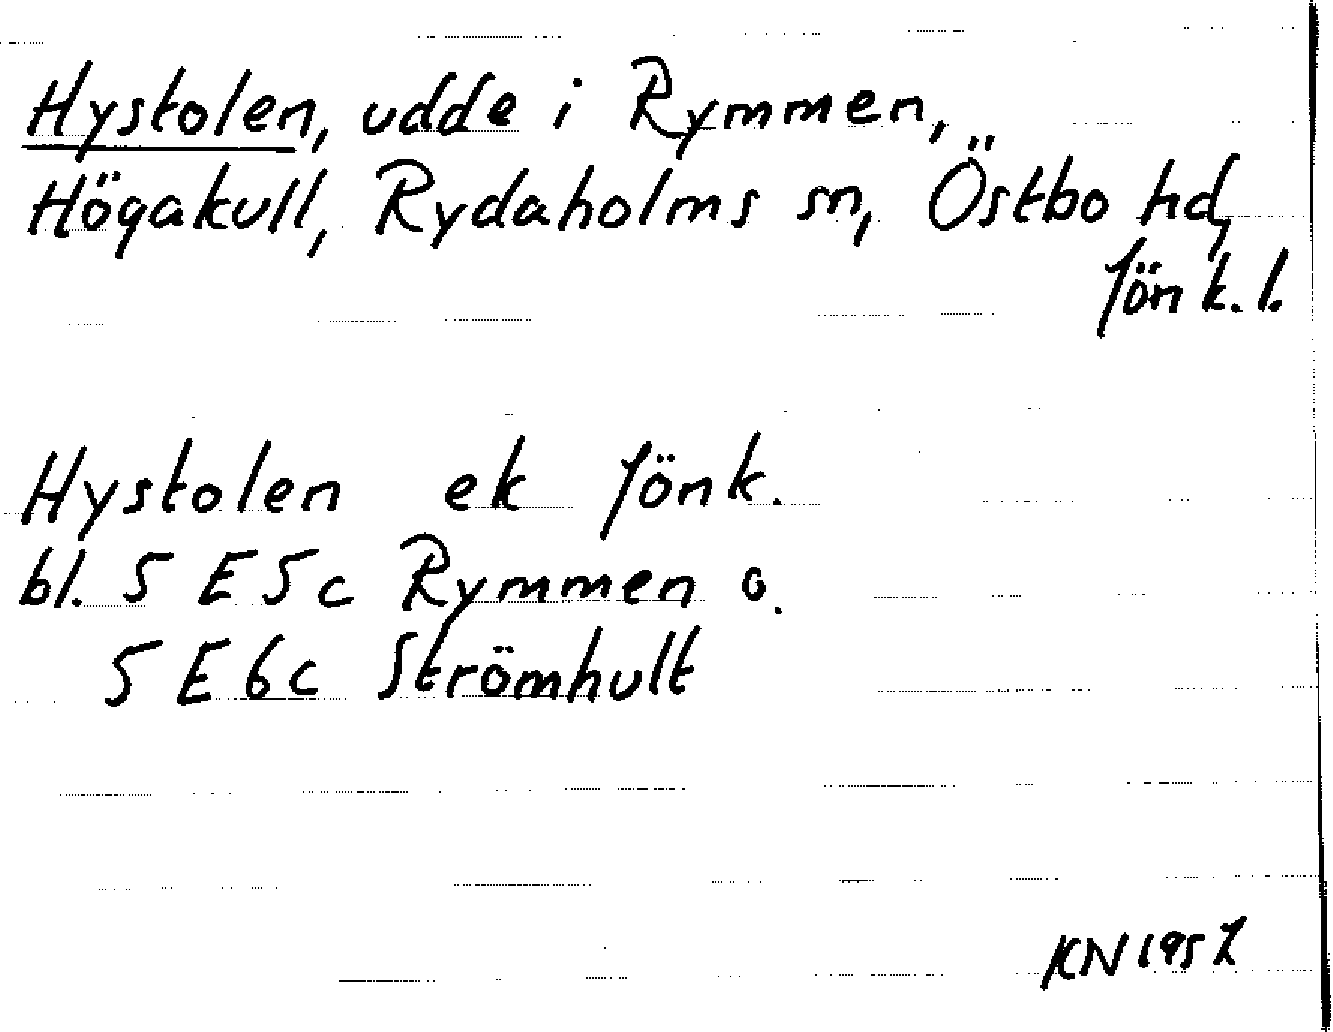 Hystolen, udde i Rymmen,
Högakull, Rydaholms sn, Östbo hd,
Jönk. l.
Hystolen ek Jönk.
bl. 5 E 5c Rymmen o.
5 E 6c Strömhult
KN 1957